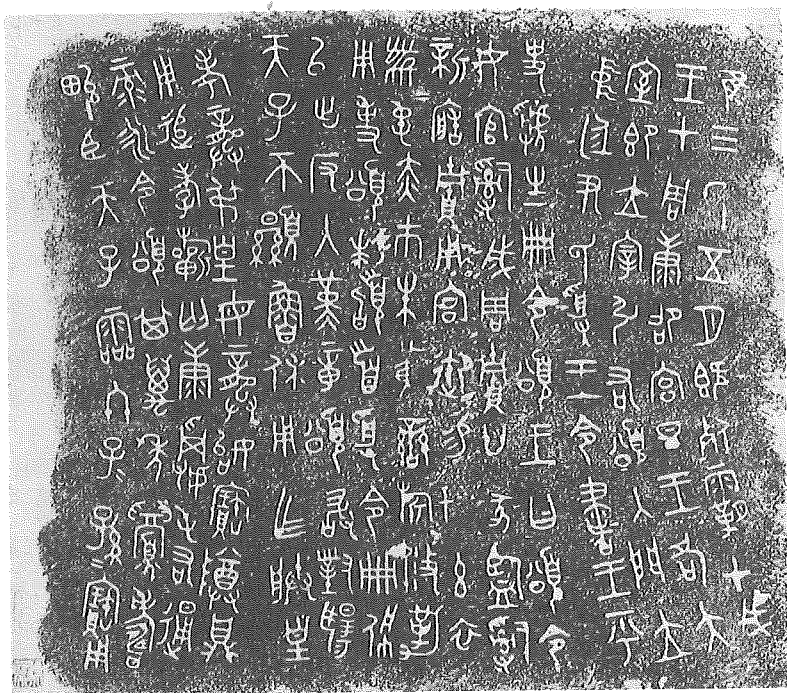 隹三年五月既死霸甲戌
王才周康卲宮旦王各大
室即立宰引右頌入門立
中廷尹氏受王令書王乎
史虢生冊令頌王曰頌令
女官𤔲成周賈廿家監𤔲
新造賈用宮御易女玄衣
黹屯赤巿朱黃䜌旂攸勒
用事頌拜稽首受令冊佩
以出反入堇章頌敢對揚
天子不顯魯休用乍朕皇
考龏弔皇母龏姒寶尊鼎
用追孝祈匄康𩁹屯右通
彔永令頌其萬年眉壽
畯臣天子霝冬子=孫=寶用